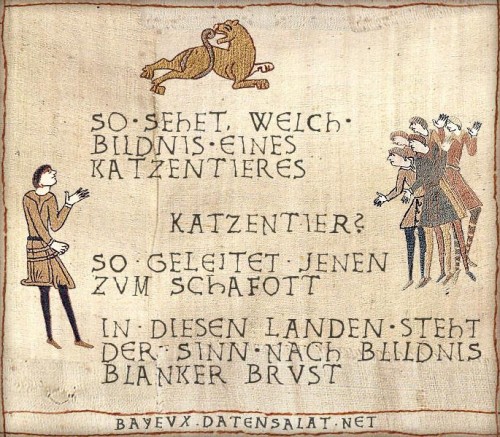 SO·SEHET, WELCH·
BILDNIS·EINES
KATZENTIERES
KATZENTIER?
SO·GELEITET·JENEN
ZVM SCHAFOTT
IN·DIESEN LANDEN·STEHT
DER·SINN·NACH BLILDNIS
BLANKER BRVST
BAYEVX.DATENSALAT.NET